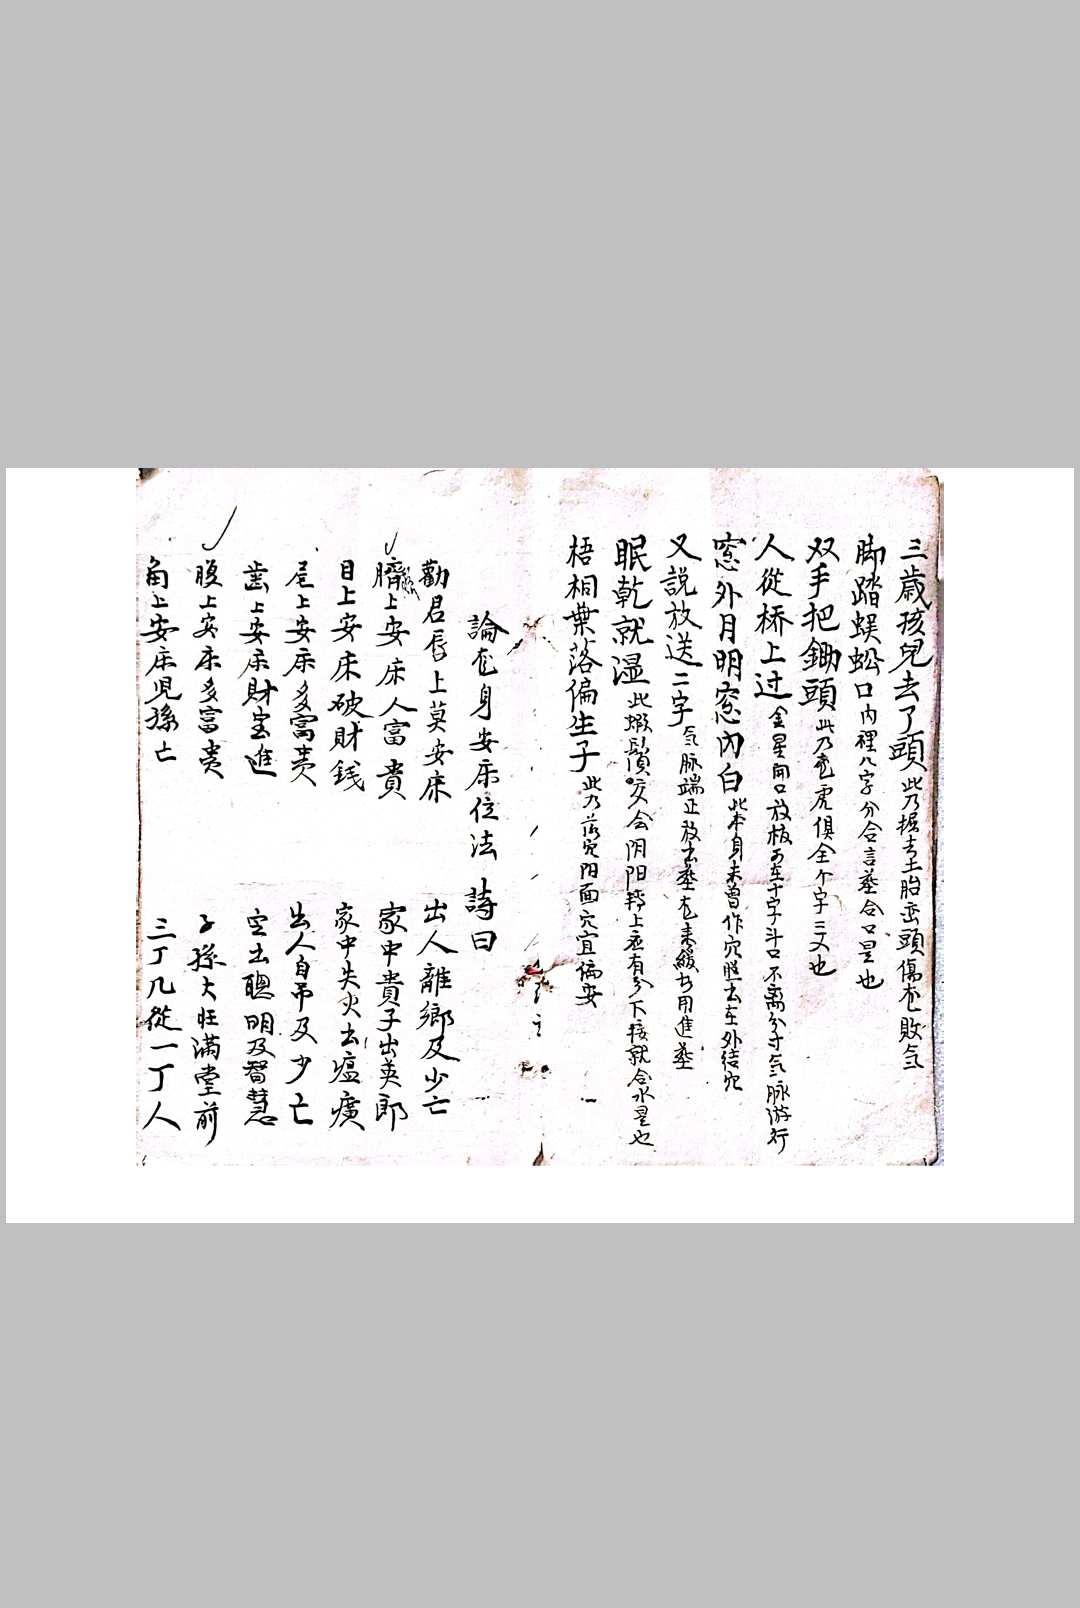 三歲孩兒去了頭 此乃掘去土胎巒頭傷龙敗气
脚踏蜈蚣口內裡 八字分合言葬合口是也
双手把鋤頭 此乃龙虎俱全个字三叉也
人從桥上过 金星開口放板在十字斗口不离分寸气脉游行
窓外月明窓內白 此本身未曾作穴照去在外结穴
又說放送二字 气脉端正放出葬龙来緩方用進葬
眠乾就湿 此蝦鬚交会阴阳上有分下接就合水是也
梧桐葉落偏生子 此乃落穴阳面穴宜偏安
論龙身安床位法 詩曰
勸君唇上莫安床 出人離鄉及少亡
臍上安床人富貴 家中貴子出英郎
目上安床破財銭 家中失火出瘟癀
尾上安床多富貴 出人自吊及少亡
歯上安床財宝進 定出聰明及智慧
腹上安床多富贵 子孫大旺滿堂前
角上安床児孫亡 三丁几從一丁人